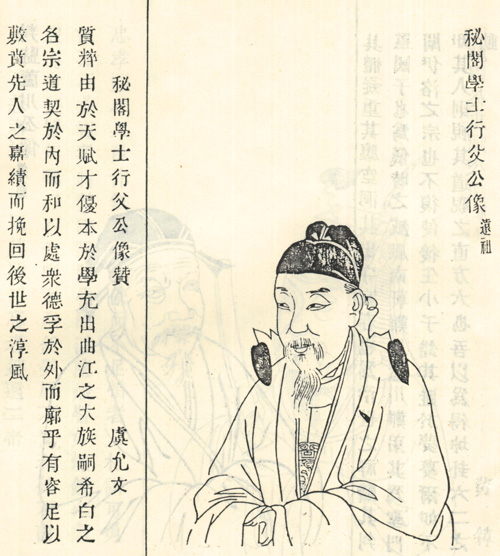 秘閣學士行父公像 遠祖
秘閣學士行父公像贊 虞允文
質粹由於天賦才優本於學充出曲江之大族嗣希白之
名宗道契於內而和以處衆德孚於外而廓乎有容足以
敷賁先人之嘉績而挽回後世之淳風